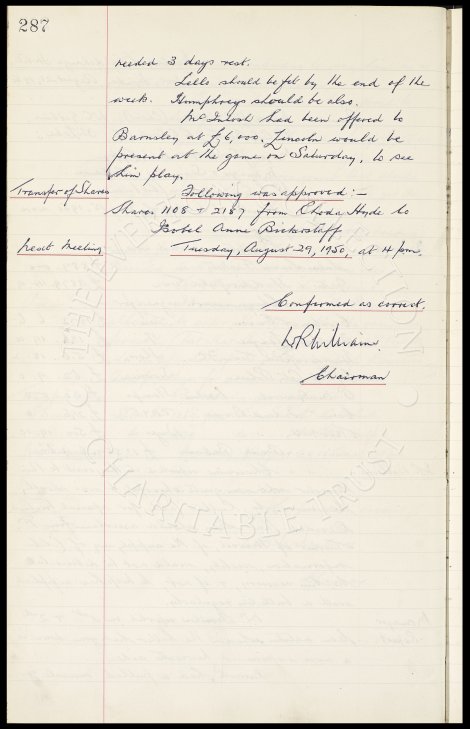 287
needed 3 days rest.
Lello should be fit by the end of the
week. Humphreys should be also.
McIntosh had been offered to
Barnsley at £6,000. Lincoln would be
present at the game on Saturday, to see
him play.
Transfer of Shares
Following was approved :-
Shares 1108 & 2187 from Rhoda Hyde to
Isobel Anne Bickerstaff
Next Meeting
Tuesday, August 29, 1950, at 4 p.m.
Confirmed as correct.
Chairman
THE EVERTON COLLECTION
CHARITABLE TRUST